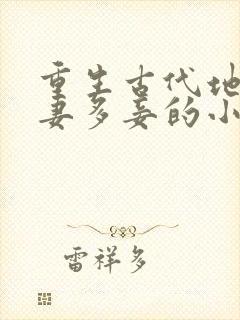 重生古代地
妻多妾的小
雷祥多